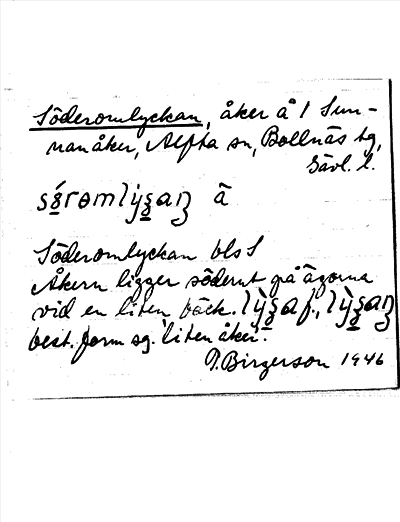 Söderomlyckan, åker å 1 Sun-
nanåker, Alfta sn, Bollnäs tg,
Gävl. l.
Söderomlyckan bls S
Åkern ligger söderut på ägorna
vid en liten bäck. f.,
best. form sg. 'liten åker'.
P. Birgerson 1946